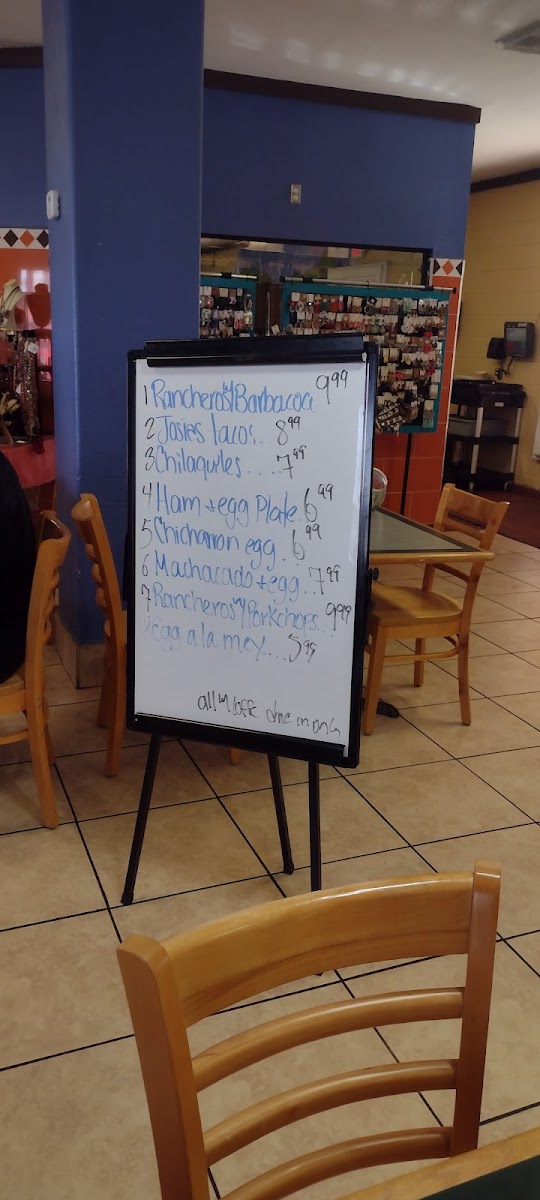 1 Rancheros w/ Barbacoa 9.99
2 Josies tacos... 8.99
3 Chilaquiles.... 7.99
4 Ham + egg Plate. 6.99
5 Chicharron egg. 6.99
6 Machacado + egg.. 7.99
7 Rancheros w/ Porkchops... 9.99
8 Egg a la mex.... 5.99
all w/ coffe dine in only